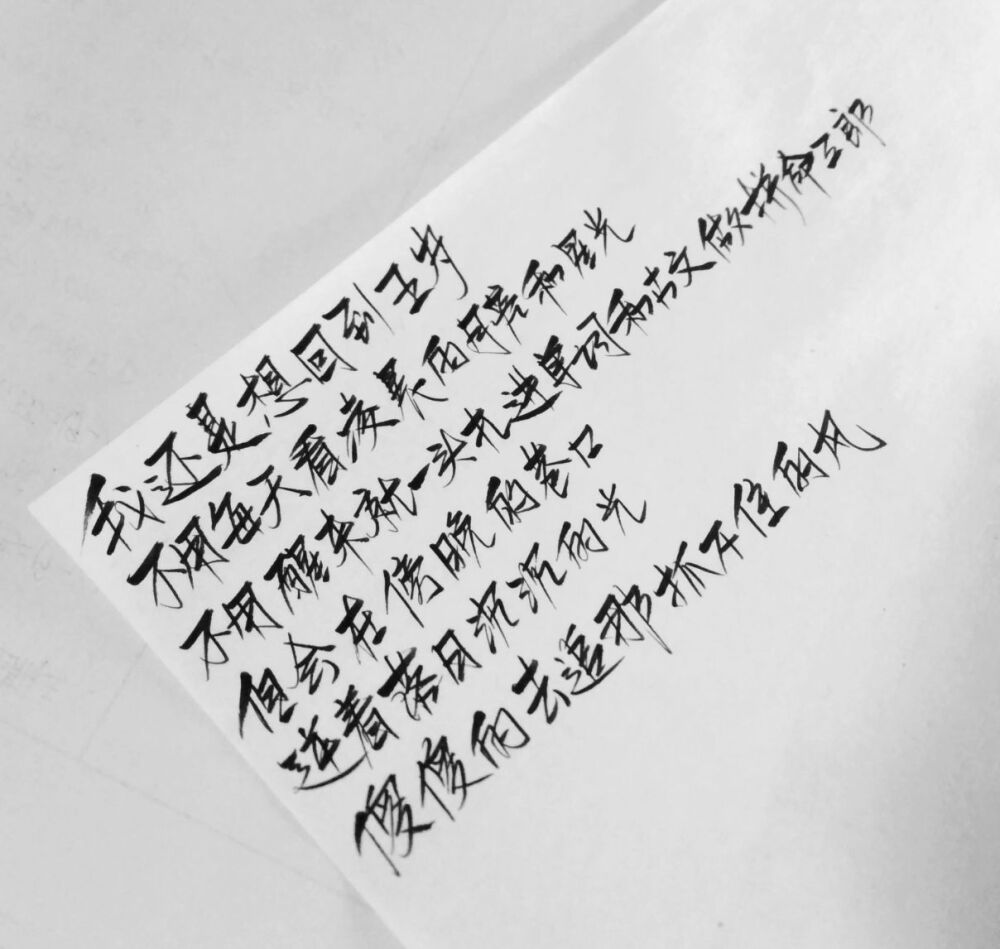 我还是想回到五岁
不用每天看凌晨的月亮和星光
不用醒来就一头扎进单词和古文做拼命三郎
但会在傍晚的巷口
迎着落日沉沉的光
傻傻的去追那抓不住的风